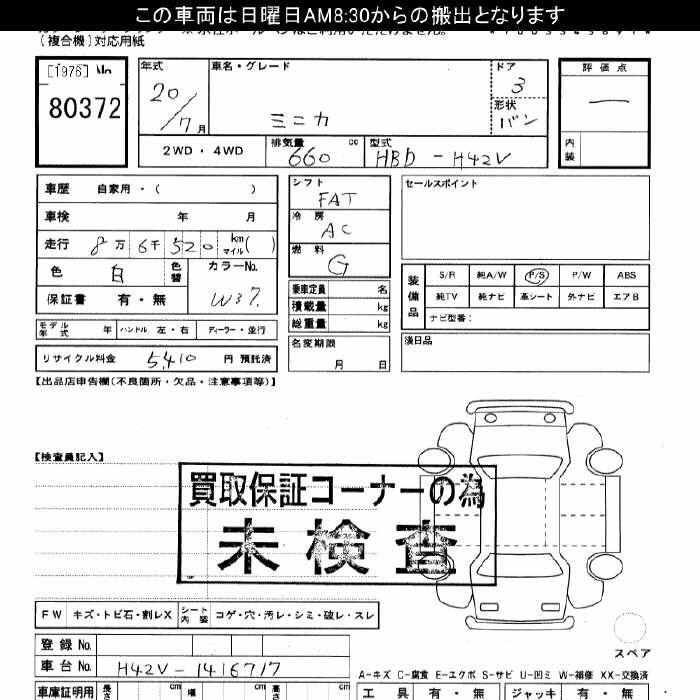 この車両は日曜日AM8:30からの搬出となります
(複合機)対応用紙
[1976] No.
80372
年式
20/7月
車名・グレード
ミニカ
ドア
3
形状
バン
評価点
一
内装
2WD・4WD
排気量
660 cc
型式
HBD-H42V
車歴 自家用・( )
車検 年 月
走行 8万6千520 km マイル( )
色 白 色替
カラーNo.
W37.
保証書 有・無
モデル年式 年 ハンドル 左・右 ディーラー・並行
リサイクル料金 5,410 円 預託済
シフト
FAT
冷房
AC
燃料
G
乗車定員 名
積載量 kg
総重量 kg
名変期限
月 日
セールスポイント
装備品
S/R 純A/W P/S P/W ABS
純TV 純ナビ 革シート 外ナビ エアB
ナビ型番:
後日品
【出品店申告欄(不良箇所・欠品・注意事項等)】
【検査員記入】
買取保証コーナーの為
未検査
FW キズ・トビ石・割レX シート内装 コゲ・穴・汚レ・シミ・破レ・スレ
スペア
登録No.
車台No. H42V-1416717
A-キズ C-腐食 E-エクボ S-サビ U-凹ミ W-補修 XX-交換済
車庫証明用 長さ cm 幅 cm 高さ cm
工具 有・無 ジャッキ 有・無